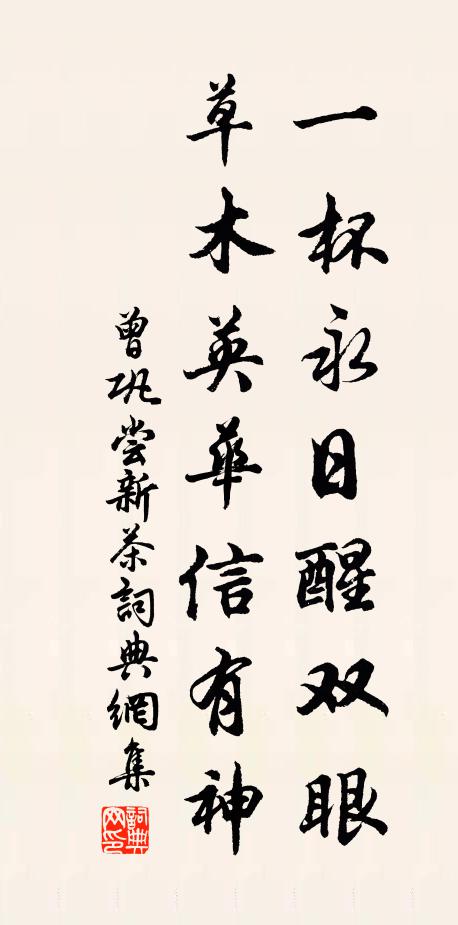 一杯永日醒双眼
草木英華信有神
曾巩尝新茶詞典網集
詞典网印